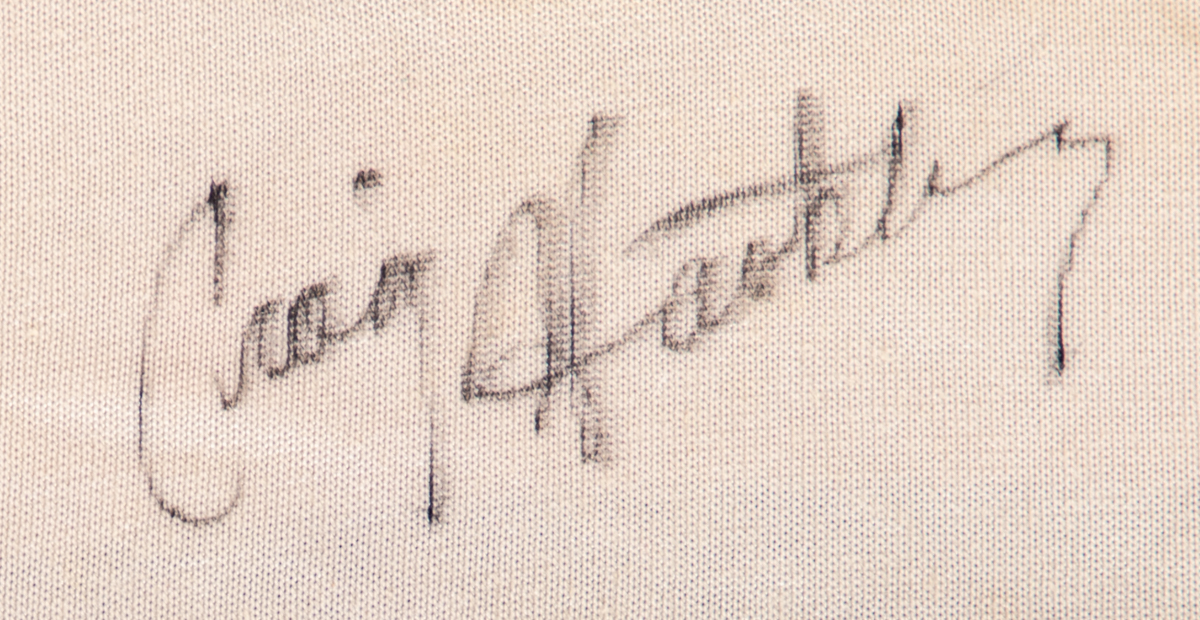 Craig Hartley